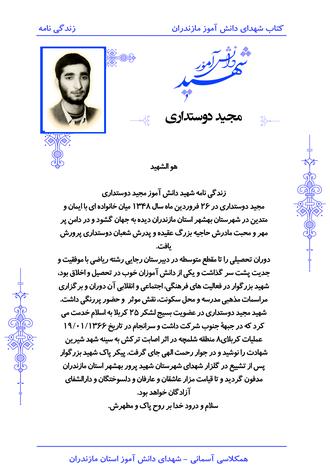 کتاب شهدای دانش آموز مازندران
زندگی نامه
شهید دانش آموز
مجید دوستداری
هو الشهید
زندگی نامه شهید دانش آموز مجید دوستداری
مجید دوستداری در ۲۶ فروردین ماه سال ۱۳۴۸ میان خانواده ای با ایمان و
متدین در شهرستان بهشهر استان مازندران دیده به جهان گشود و در دامن پر
مهر و محبت مادرش حاجیه بزرگ عقیده و پدرش شعبان دوستداری پرورش
یافت.
دوران تحصیلی را تا مقطع متوسطه در دبیرستان رجایی رشته ریاضی با موفقیت و
جدیت پشت سر گذاشت و یکی از دانش آموزان خوب در تحصیل و اخلاق بود.
شهید بزرگوار در فعالیت های فرهنگی، اجتماعی و انقلابی آن دوران و برگزاری
مراسمات مذهبی مدرسه و محل سکونت، نقش موثر و حضور پررنگی داشت.
شهید مجید دوستداری در عضویت بسیج لشکر ۲۵ کربلا به اسلام خدمت می
کرد که در جبهۀ جنوب شرکت داشت و سرانجام در تاریخ ۱۹/۰۱/۱۳۶۶
عملیات کربلای۸ منطقه شلمچه در اثر اصابت ترکش به سینه شهد شیرین
شهادت را نوشید و در جوار رحمت الهی جای گرفت. پیکر پاک شهید بزرگوار
پس از تشییع در گلزار شهدای شهرستان شهید پرور بهشهر استان مازندران
مدفون گردید و تا قیامت مزار عاشقان و عارفان و دلسوختگان و دارالشفای
آزادگان خواهد بود.
سلام و درود خدا بر روح پاک و مطهرش.
همکلاسی آسمانی - شهدای دانش آموز استان مازندران